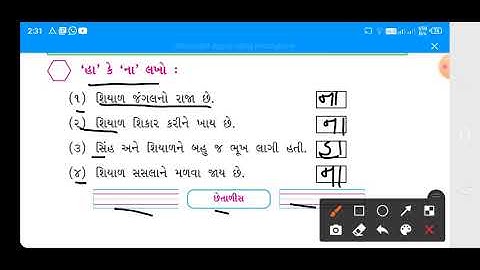 2:31
'હા' કે 'ના' લખો :
(૧) શિયાળ જંગલનો રાજા છે. ના
(૨) શિયાળ શિકાર કરીને ખાય છે. ના
(૩) સિંહ અને શિયાળને બહુ જ ભૂખ લાગી હતી. હા
(૪) શિયાળ સસલાને મળવા જાય છે. ના
છેતાળીસ